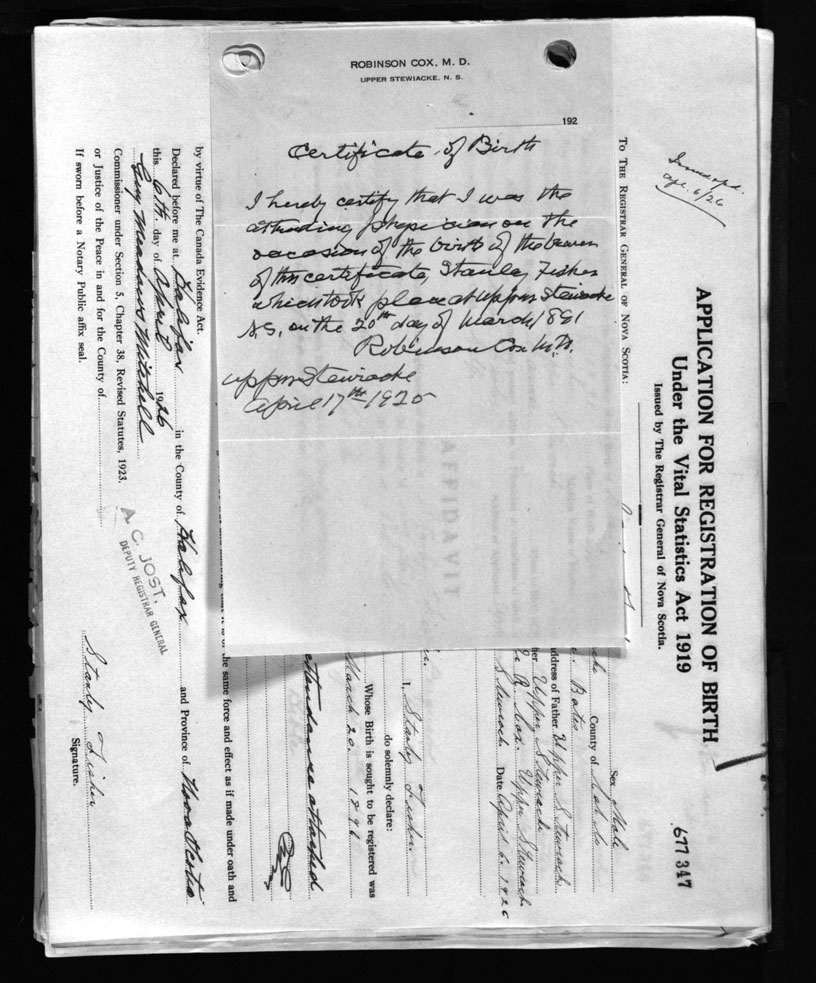 ROBINSON COX, M. D.
UPPER STEWIACKE, N. S.
192
Certificate of Birth
I hereby certify that I was the
attending physician on the
occasion of the birth of the bearer
of this certificate, Stanley Fisher
which took place at Upper Stewiacke
N.S. on the 20th day of March 1891
Robinson Cox M.D.
Upper Stewiacke
April 17th 1925
APPLICATION FOR REGISTRATION OF BIRTH
Under the Vital Statistics Act 1919
Issued by The Registrar General of Nova Scotia.
677347
Apr. 6/26
TO THE REGISTRAR GENERAL OF NOVA SCOTIA:
Sex Male
County of
address of Father Upper Stewiack
Upper Stewiack
R. Cox. Upper Stewiack
Stewiack Date April 6. 1926
AFFIDAVIT
I, Stanly Fisher
do solemnly declare:
Whose Birth is sought to be registered was
March 20. 189
attendance attached
the same force and effect as if made under oath and
by virtue of The Canada Evidence Act.
Declared before me at Halifax in the County of Halifax and Province of Nova Scotia
this 6th day of April 1926
Guy Meadows Mitchell
Commissioner under Section 5, Chapter 38, Revised Statutes, 1923.
or Justice of the Peace in and for the County of
If sworn before a Notary Public affix seal.
A. C. JOST,
DEPUTY REGISTRAR GENERAL
Stanly Fisher
Signature.